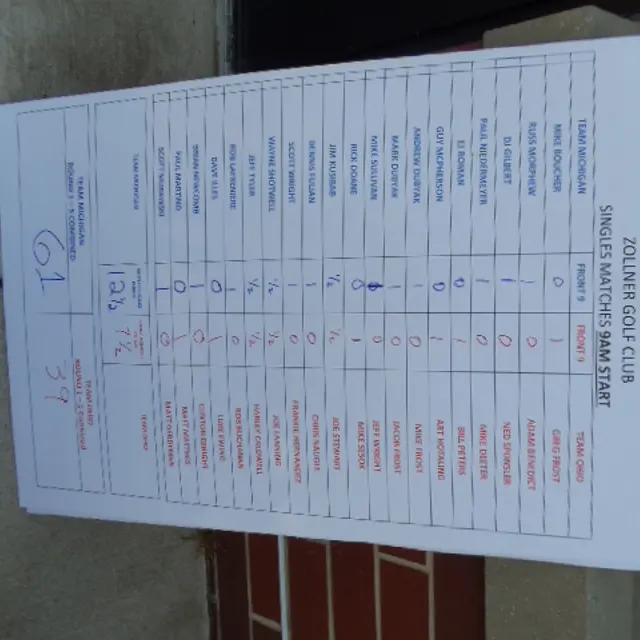 ZOLLNER GOLF CLUB
SINGLES MATCHES 9AM START
TEAM MICHIGAN FRONT 9 FRONT 9 TEAM OHIO
MIKE BOUCHER 0 1 GREG FROST
RUSS MORPHEW 1 0 ADAM BENEDICT
DJ GILBERT 1 0 NED
PAUL NEIDERMEYER 1 0 MIKE DIETER
EJ ROMAN 0 1 BILL PETERS
GUY MCPHERSON 0 1 ART HOTALING
ANDREW DUBYAK 1 0 MIKE FROST
MARK DUBYAK 1 0 JACOB FROST
MIKE SULLIVAN 0 JEFF WRIGHT
RICK DOANE 0 1 MIKE SISOK
JIM 1/2 1/2 JOE STEWART
DENNIS 1 0 CHRIS
SCOTT WRIGHT 1 0 FRANKIE HERNANDEZ
WAYNE SHOTWELL 1/2 1/2 JOE
JEFF TYLER 1/2 1/2 HARLEY CALDWELL
ROB 1 0 ROB BUCHANAN
DAVE ILLES 0 1 LUKE FROST
BRIAN NEWCOMB 1 0
PAUL MARTINO 0 1 MATT
SCOTT 1 0 MATT
TEAM MICHIGAN 12 1/2 7 1/2 TEAM OHIO
TEAM MICHIGAN TEAM OHIO
ROUNDS 1 - 5 COMBINED ROUNDS 1 - 5 COMBINED
61 39